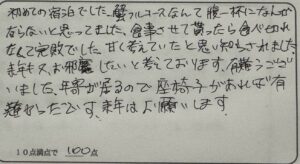 初めての宿泊でした。蟹フルコースなんて腹一杯になんか
ならないと思ってました。食事させて貰ったら食べ切れ
なくて完敗でした。甘く考えていたと思い知らされました
来年も又お邪魔したいと考えております。有難うござ
いました。年寄が居るので座椅子があれば有
難かったです。来年はお願いします。
10点満点で 100点